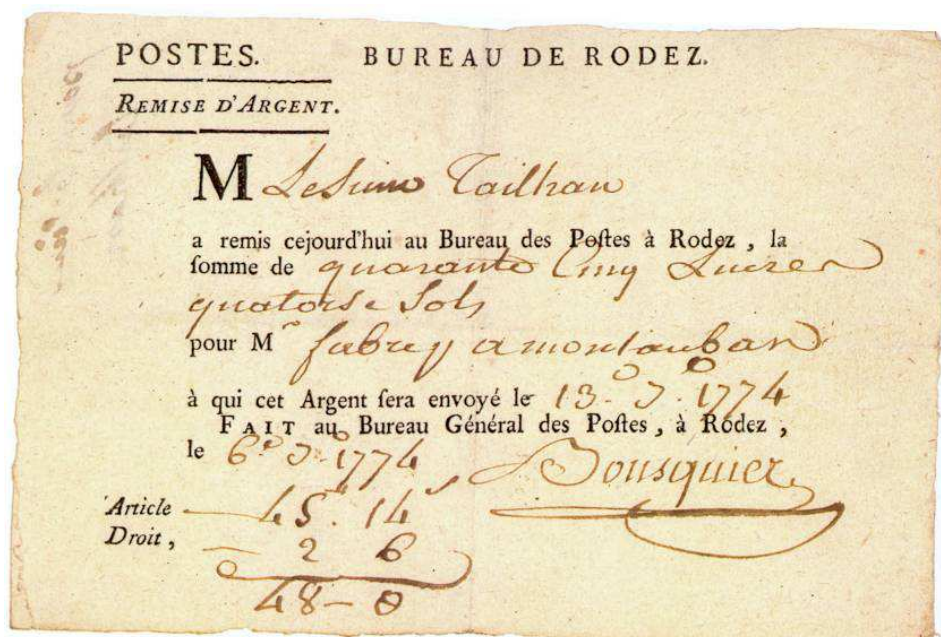 POSTES. BUREAU DE RODEZ.
REMISE D'ARGENT.
M Le Sieur Tailhan
a remis cejourd'hui au Bureau des Poſtes à Rodez, la
ſomme de quarante Cinq Livres
quatorse Sols
pour Mr fabrey a montauban
à qui cet Argent ſera envoyé le 13 1774
FAIT au Bureau Général des Poſtes, à Rodez,
le 6 1774 Bousquier
Article 45. 14
Droit, 2 6
48 - 0